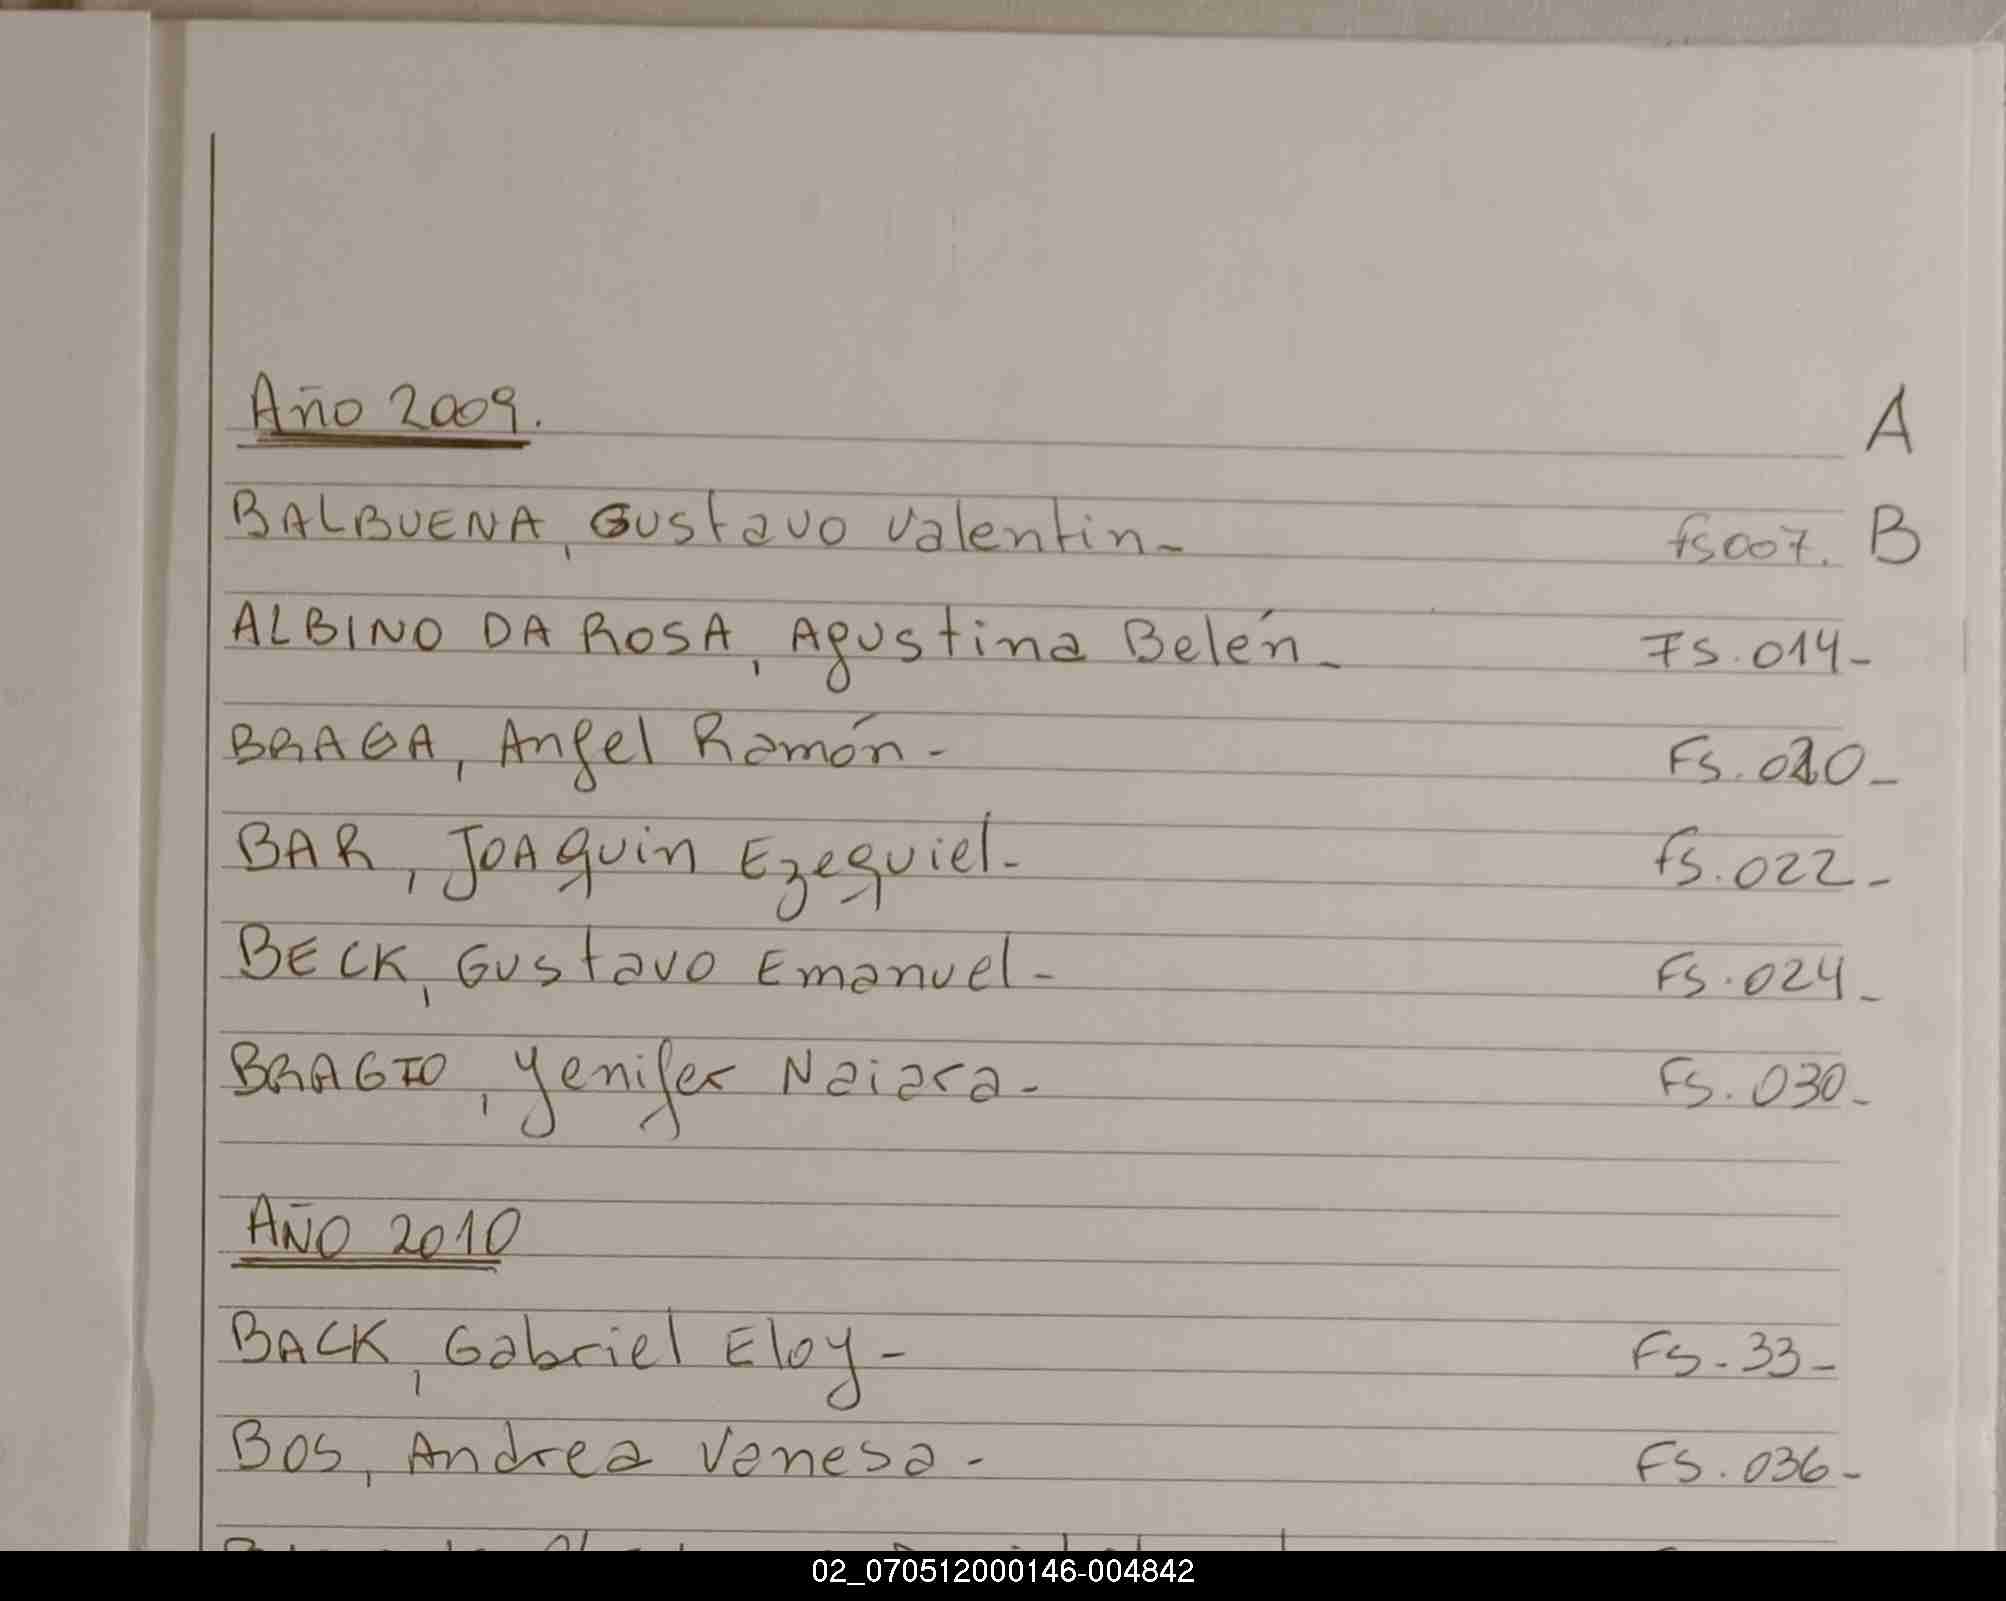 Año 2009. A
BALBUENA, Gustavo Valentin- fs007. B
ALBINO DA ROSA, Agustina Belén- FS.014-
BRAGA, Angel Ramón- FS.020-
BAR, JOAquin Ezequiel- fS.022-
BECK, Gustavo Emanuel- FS.024-
BRAGIO, Yenifer Naiara- FS.030-
AÑO 2010
BACK, Gabriel Eloy- FS-33-
BOS, Andrea Vanesa- FS.036-
02_070512000146-004842